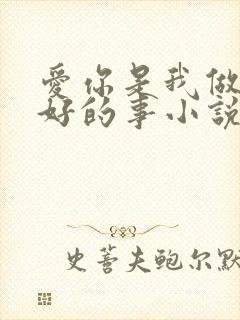 愛你是我做
好的事小説
史蒈夫鲍尔默